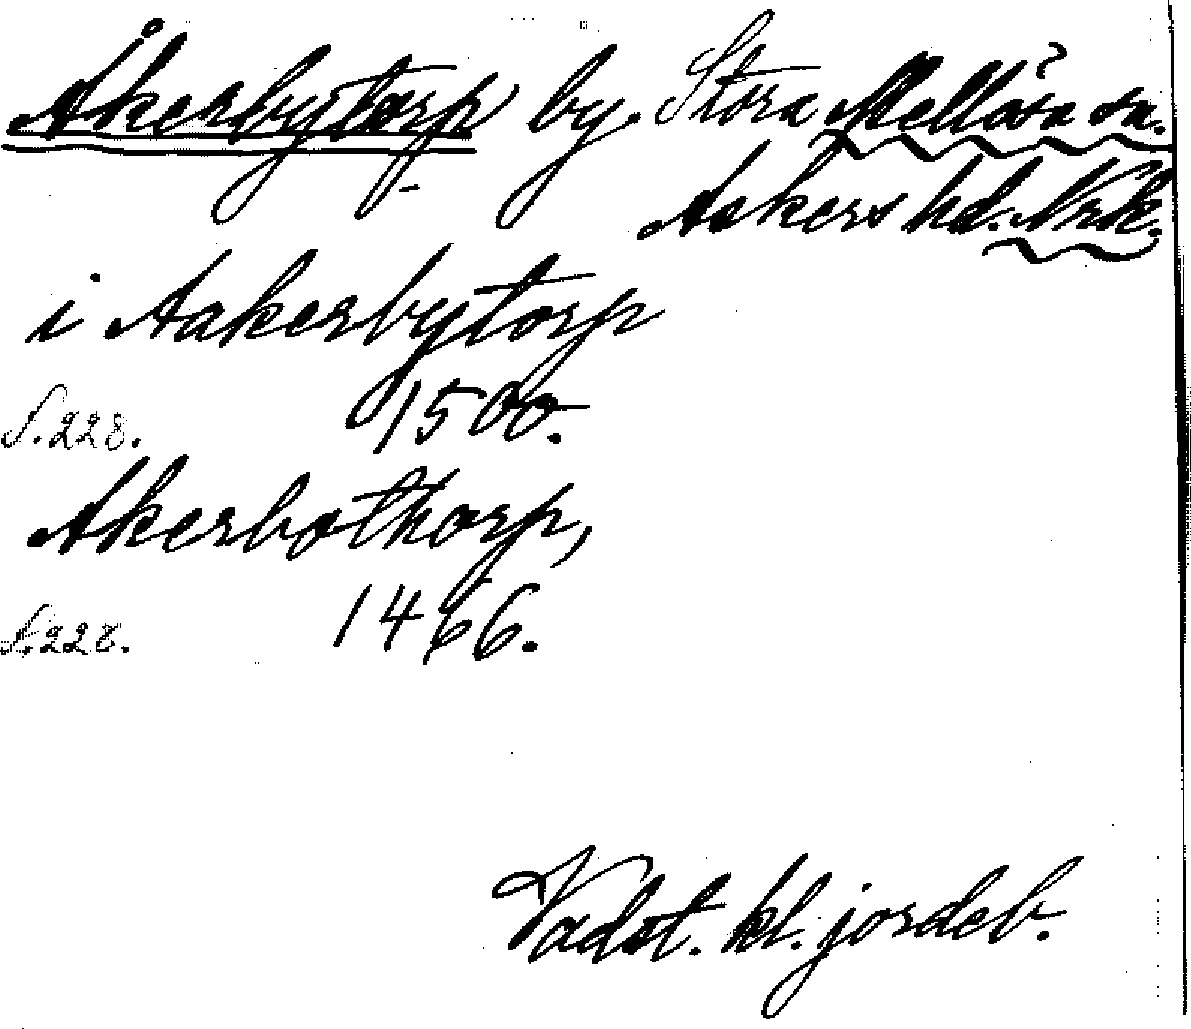 Åkerbytorp by. Stora Mellösa sn.
Askers hd. Nrk.
i Aakerbytorp
S. 228. 1500.
Akerbothorp,
S. 228. 1466.
Vadst. kl. jordeb.